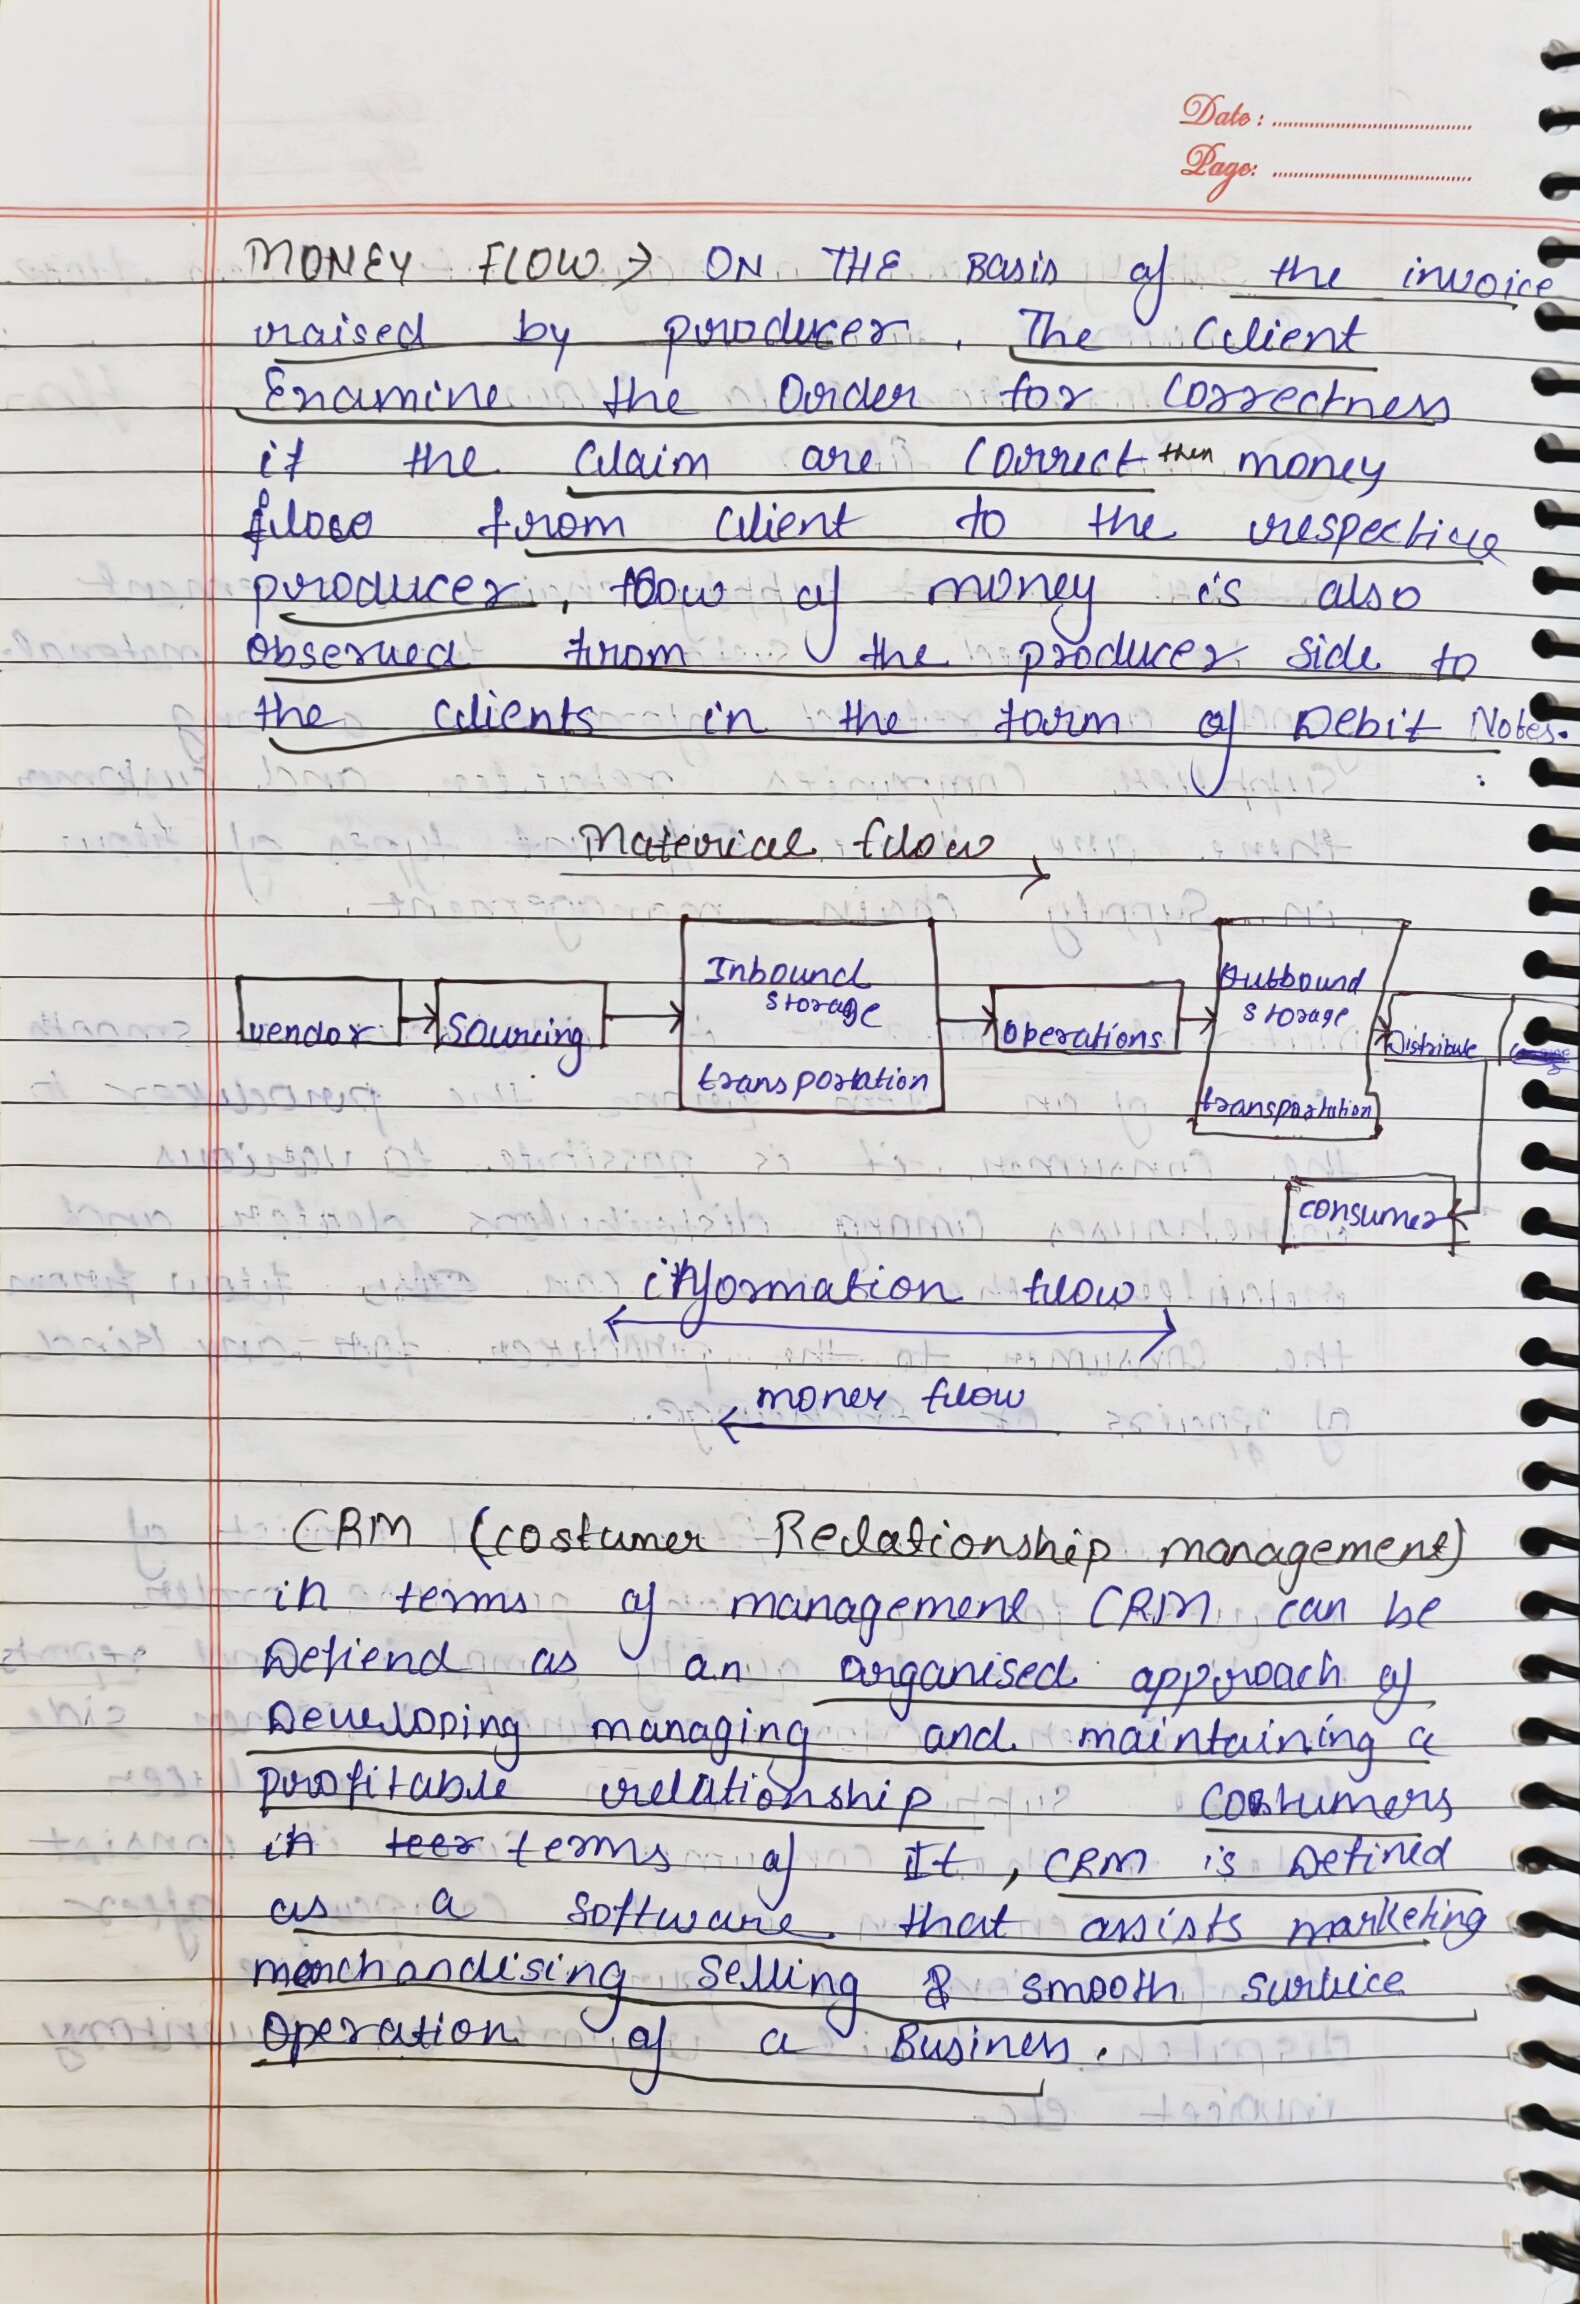 Date:
Page:
MONEY FLOW → ON THE Basis of the invoice
raised by producer. The Client
Examine the Order for Correctness
if the Claim are Correct then money
flow from Client to the respective
producer, flow of money is also
observed from the producer side to
the clients in the form of Debit Notes.
Material flow
vendor
Sourcing
Inbound
storage
transportation
operations
Outbound
storage
transportation
Distribute
consumer
information flow
money flow
CRM (costumer Relationship management)
in terms of management CRM can be
Defiend as an organised approach of
Developing managing and maintaining a
profitable relationship costumers
in teer terms of It, CRM is Defined
as a software that assists marketing
merchandising selling & smooth survice
operation of a Business.